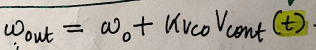 ω_out = ω_o + K_VCO V_cont (t)